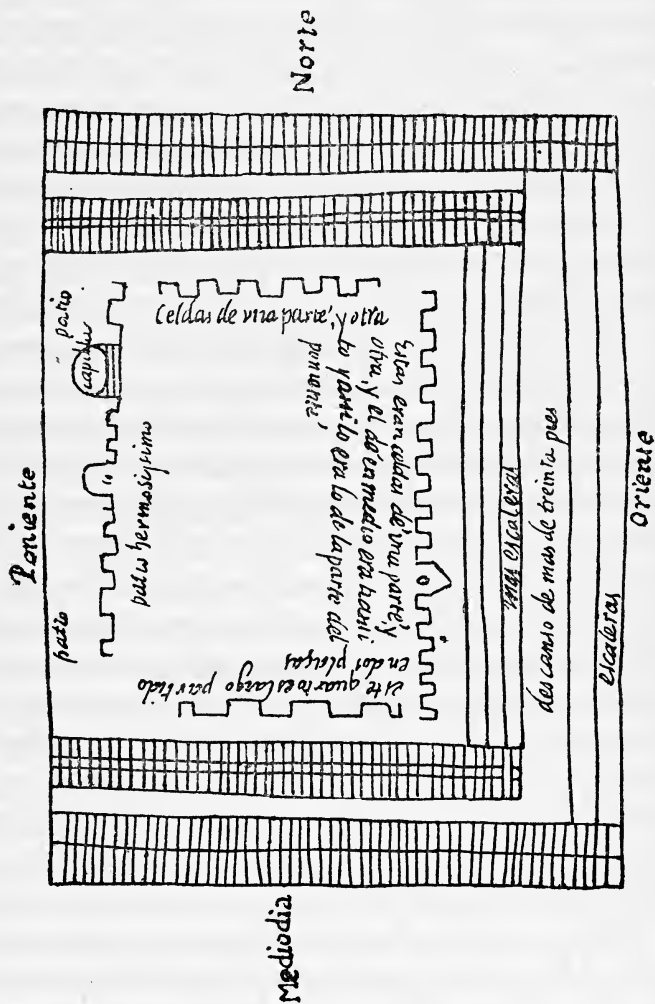 Norte
Poniente
patio
capilla
patio
patio hermosysimo
Celdas de vna parte, y otra
Estas eran celdas de vna parte, y
otra, y el de en medio era transi
to y assi lo era lo de la parte del
poniente,
este quarto es largo partido
en dos plaças
mas escaleras
descanso de mas de treinta pies
escaleras
Oriente
Mediodia